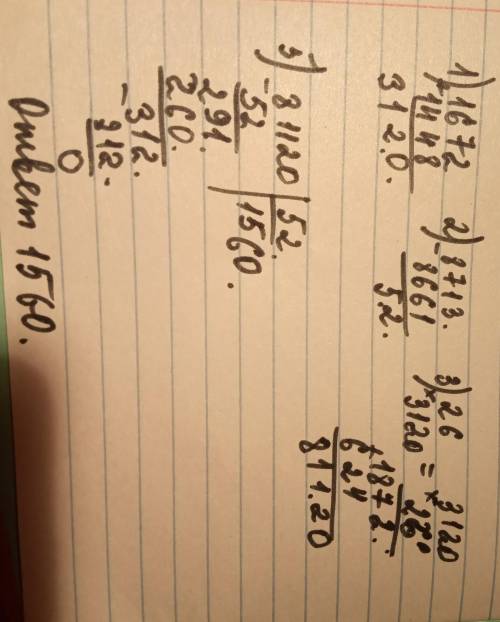 1) 1672
+ 1448
3120.
2) 8713.
- 8661
52.
3) 26
× 3120 =
3120
× 26
+ 1872.
624
811.20
5) 81120 | 52.
- 52 | 1560.
291.
260.
- 312.
312.
0
Ответ 1560.